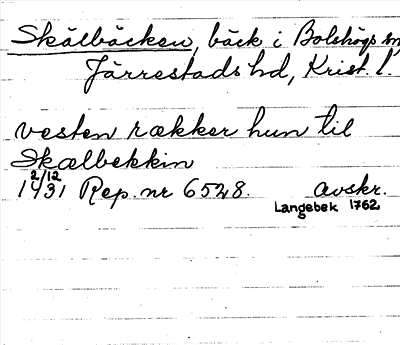 Skälbäcken, bäck i Bolshögs sn,
Järrestads hd, Krist. l.
vesten rækker hun til
Skælbekkin
2/12
1431 Rep. nr 6528. avskr.
Langebek 1762